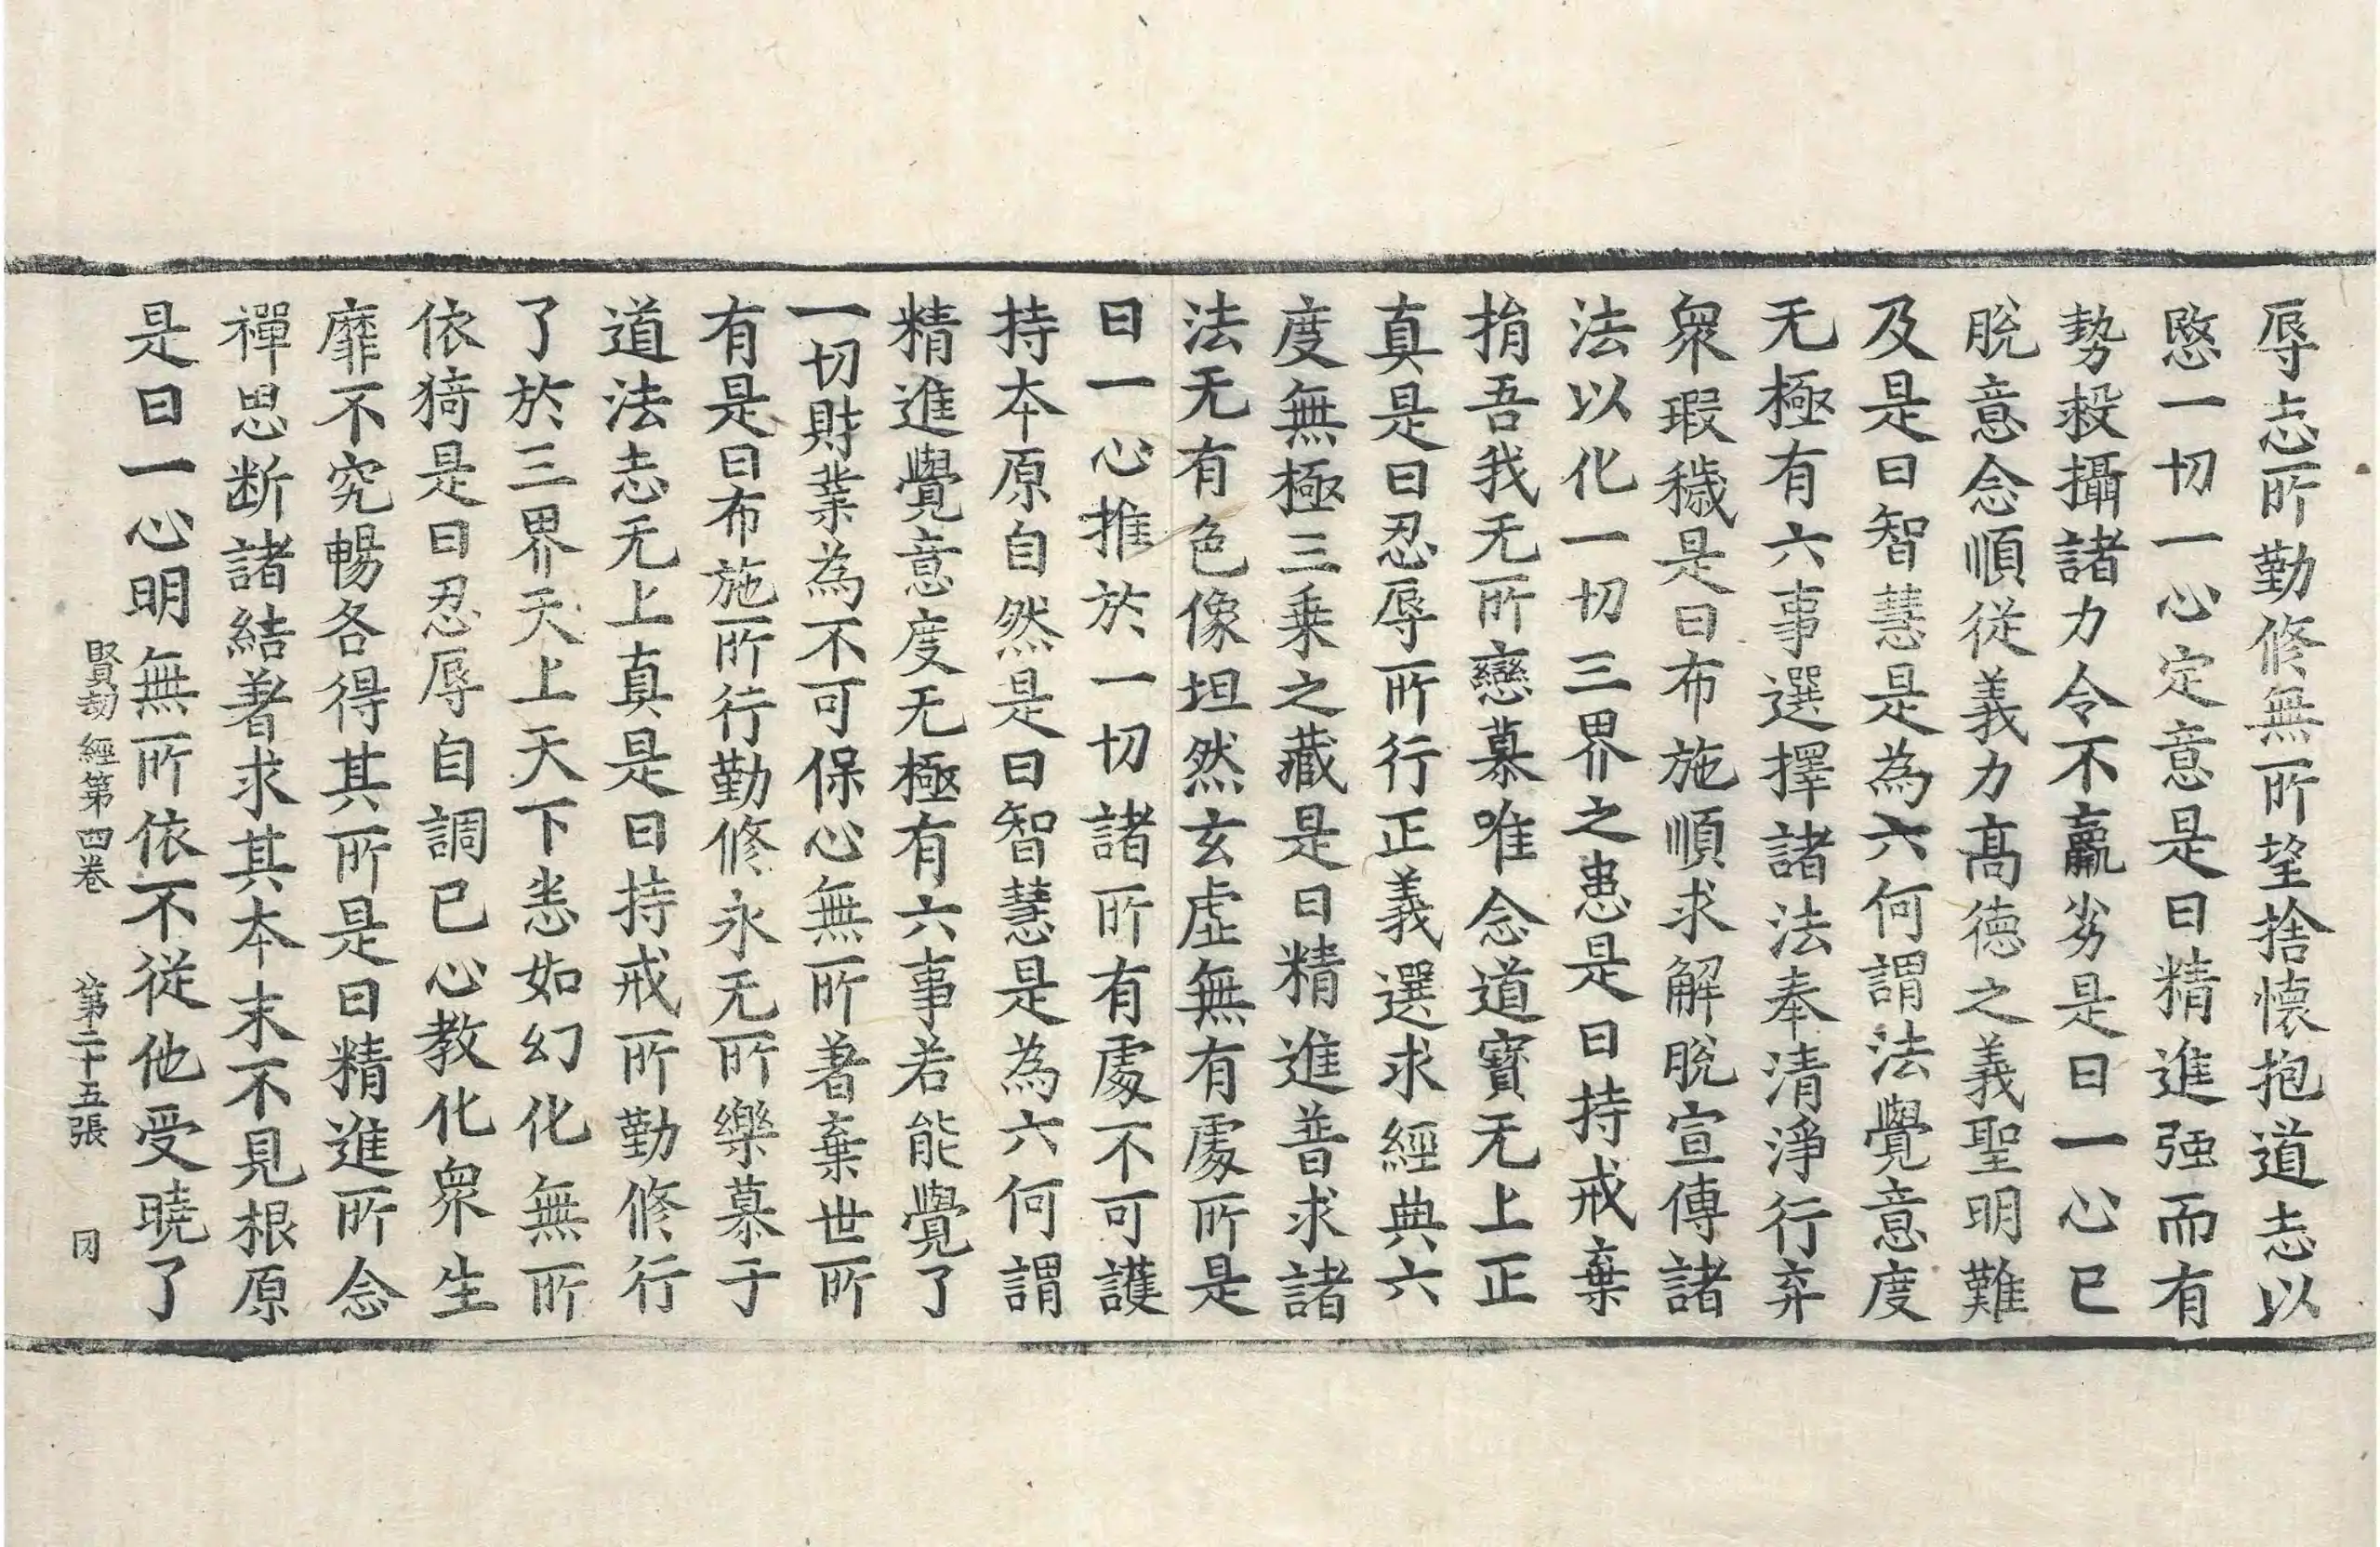 辱志所勤修無所望捨懷抱道志以
愍一切一心定意是曰精進强而有
勢救攝諸力令不羸劣是曰一心已
脫意念順從義力髙德之義聖明難
及是曰智慧是為六何謂法覺意度
无極有六事選擇諸法奉清淨行弃
衆瑕穢是曰布施順求解脫宣傳諸
法以化一切三界之患是曰持戒棄
捐吾我无所戀慕唯念道寳无上正
真是曰忍辱所行正義選求經典六
度無極三乗之藏是曰精進普求諸
法无有色像坦然玄虛無有處所是
曰一心推於一切諸所有處不可護
持本原自然是曰智慧是為六何謂
精進覺意度无極有六事若能覺了
一切財業為不可保心無所著棄世所
有是曰布施所行勤修永无所樂慕于
道法志无上真是曰持戒所勤修行
了於三界天上天下恙如幻化無所
依猗是曰忍辱自調已心教化衆生
靡不究暢各得其所是曰精進所念
禪思断諸結著求其本末不見根原
是曰一心明無所依不從他受曉了
賢劫經第四卷 第二十五張 罔